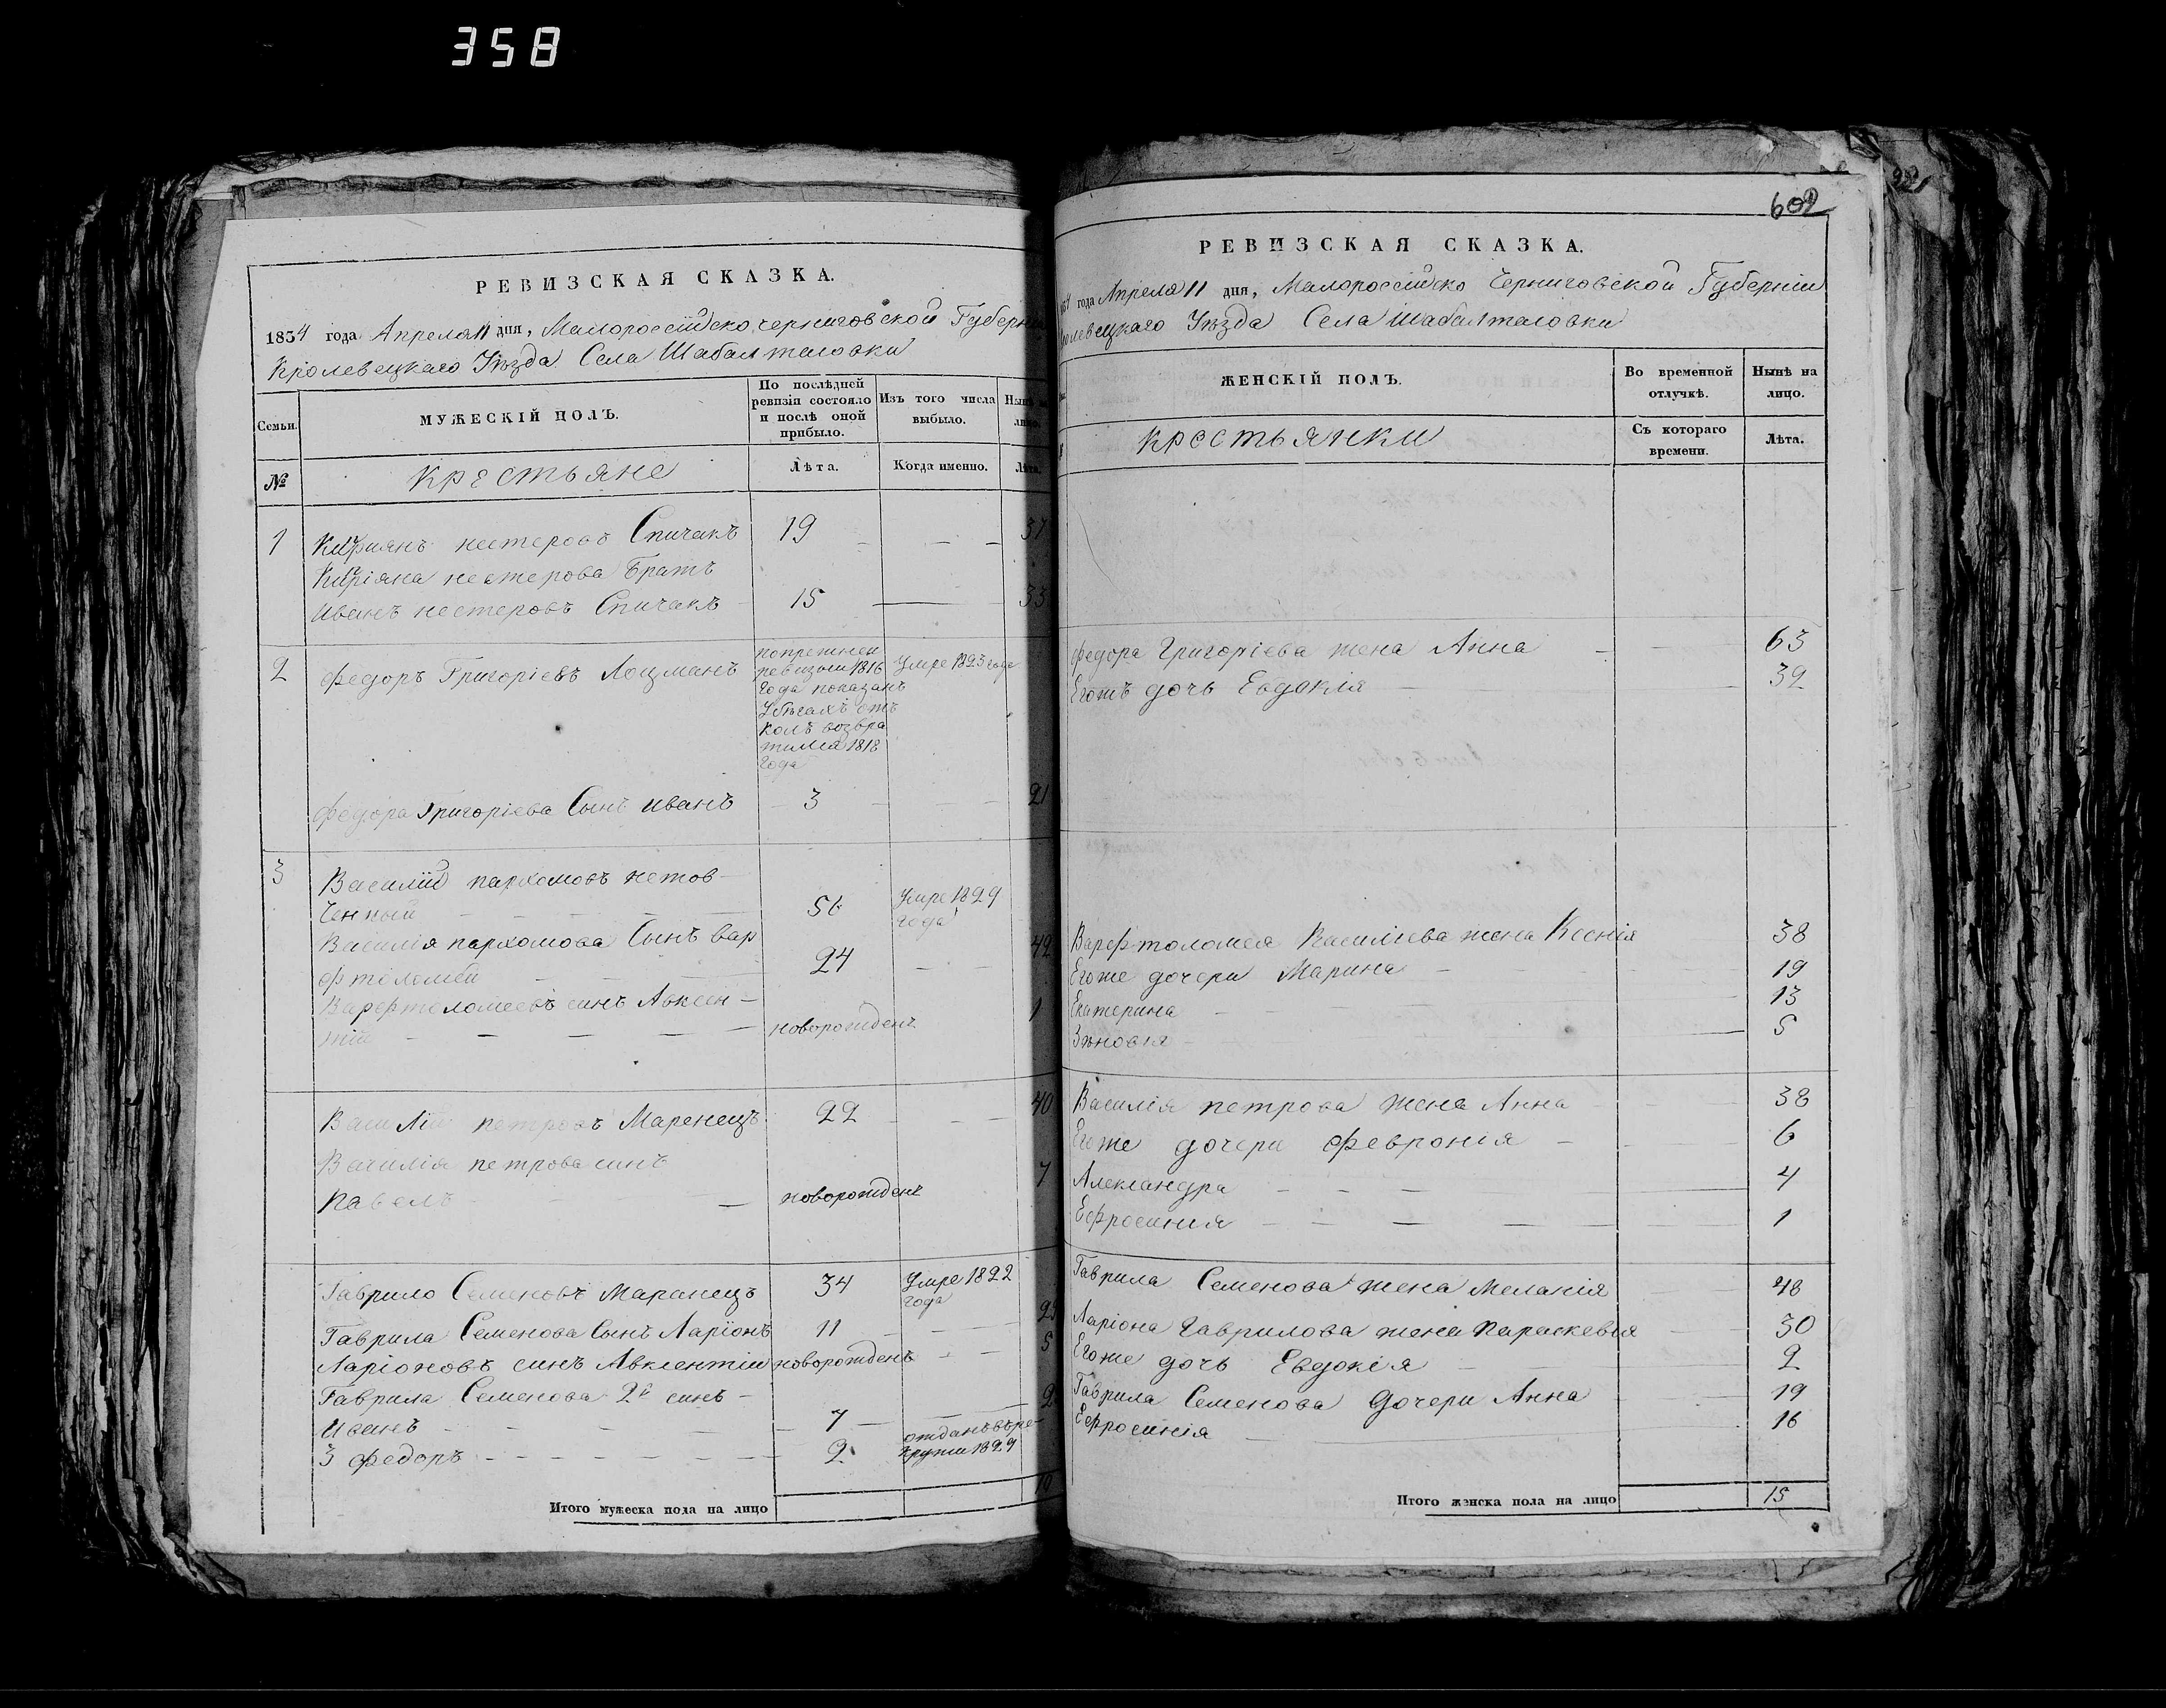 358
РЕВИЗСКАЯ СКАЗКА.
1834 года Апреля 11 дня, Малороссийско черниговской Губерн
Кролевецкаго Уѣзда Села Шабалталовки
Семьи.
МУЖЕСКІЙ ПОЛЪ.
По послѣдней ревизіи состояло и послѣ оной прибыло.
Изъ того числа выбыло.
№
Крестьяне
Лѣта.
Когда именно.
1 Киприянъ нестеровъ Спичакъ 19 — — 37
Кипріяна нестерова братъ
Иванъ нестеровъ Спичакъ 15 — 33
2 Федоръ Григоріевъ Лоцманъ
попрежнеи
ревизыи 1816
Года показанъ
возвра
1818
Года
Умре 1823 года
Федора Григоріева Сынъ иванъ 3 — 21
3 Василий пархомовъ нетов-
ченный 56 Умре 1829 года
Василія пархомова Сынъ вар
фтоломей 24 — — 42
Варфтоломеевъ синъ Авксен-
тій новорожденъ 1
Василій петровъ Маренецъ 22 — — 40
Василія петрова синъ
Павелъ — новорожденъ 7
Гаврило Семеновъ Маранецъ 34 Умре 1822 года
Гаврила Семенова Сынъ Ларіонъ 11
Ларіоновъ синъ Авклентіи новорожденъ — — 5
Гаврила Семенова 2й синъ —
Иванъ — 7 —
3 Федоръ — 2 отданъ врекруты 1829
Итого мужеска пола на лицо
602
РЕВИЗСКАЯ СКАЗКА.
года Апреля 11 дня, Малороссийско Черниговской Губерніи
ролевецкаго Уѣзда Села Шабалталовки
ЖЕНСКІЙ ПОЛЪ.
Во временной отлучкѣ.
Нынѣ на лицо.
Крестьянки
Съ котораго времени.
Лѣта.
Федора Григоріева жена Анна — 63
Егожъ дочь Евдокія — 39
Варфтоломея Василіева жена Ксенія 38
Егоже дочери Марина — 19
Екатерина — 13
Зѣновія — 5
Василія петрова жена Анна 38
Егоже дочери Февронія — 6
Александра — — — 4
Ефросинія — — — 1
Гаврила Семенова жена Меланія 48
Ларіона Гаврилова жена Параскевія 30
Егоже дочь Евдокія 2
Гаврила Семенова Дочери Анна 19
Ефросинія 16
Итого женска пола на лицо 15